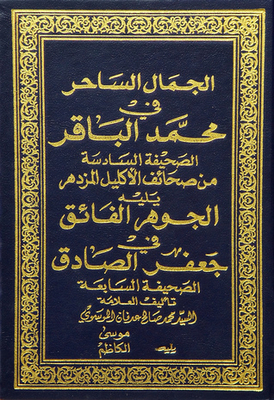 الجمال الساحر
في
محمد الباقر
الصحيفة السادسة
من صحائف الأكليل المزدهر
يليه
الجوهر الفائق
في
جعفر الصادق
الصحيفة السابعة
تأليف العلامة
السيد محمد صالح عدنان الموسوي
موسى
الكاظم
يليه